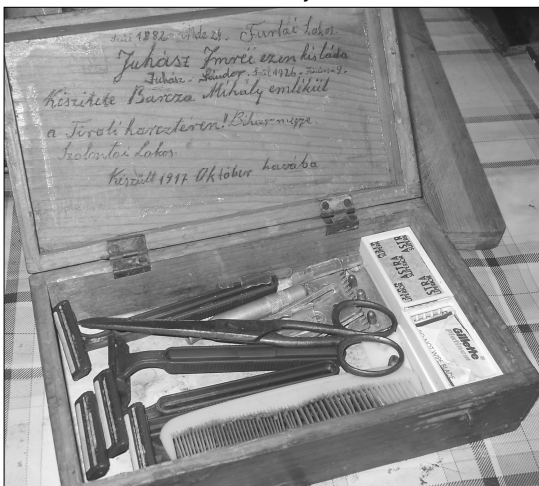 Szül 1882 - Mde 24. Furtai Lakos.
Juhász Imréé ezen kisláda
Juhász Sándor Szül 1926
Készitete Barcza Mihály emlékül
a Tiroli harcztéren! Bihar megye
Lakos.
Készült 1917 Október havába
ASTRA
ASTRA
Gillette